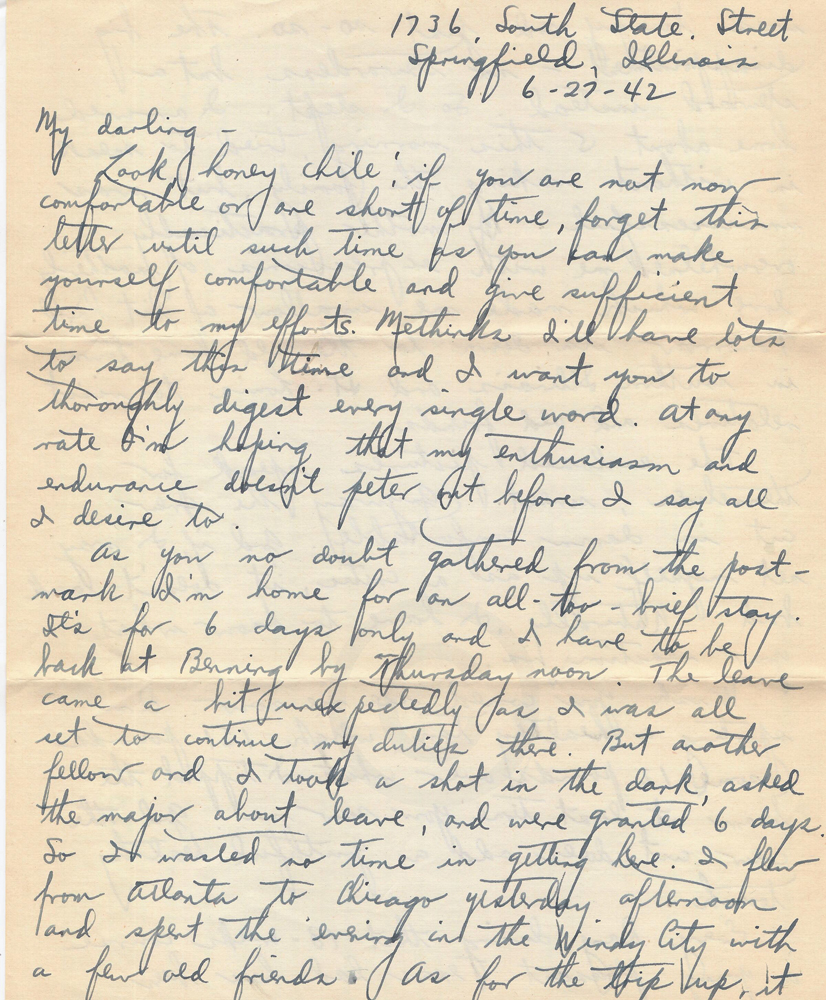 1736, South State. Street
Springfield, Illinois
6-27-42
My darling -
Look, honey chile! if you are not now
comfortable or are short of time, forget this
letter until such time as you can make
yourself comfortable and give sufficient
time to my efforts. Methinks I'll have lots
to say this time and I want you to
thoroughly digest every single word. At any
rate I'm hoping that my enthusiasm and
endurance doesn't peter out before I say all
I desire to.
As you no doubt gathered from the post-
mark I'm home for an all-too-brief stay.
It's for 6 days only and I have to be
back at Benning by Thursday noon. The leave
came a bit unexpectedly as I was all
set to continue my duties there. But another
fellow and I took a shot in the dark, asked
the major about leave, and were granted 6 days.
So I wasted no time in getting here. I flew
from Atlanta to Chicago yesterday afternoon
and spent the evening in the Windy City with
a few old friends. As for the trip up, it